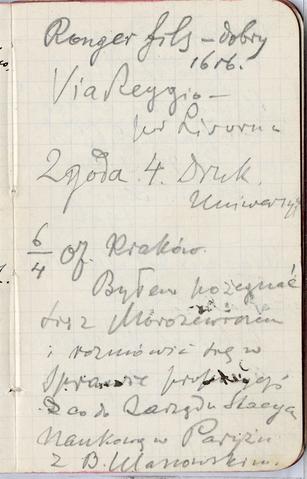 Ronger fils – dobry
16 rb.
Via Reggio –
pod Livorna
Zgoda 4. Druk.
Uniwersyt
6/4 Of. Kraków.
Byłem pożegnać
się z Morozewiczem
i rozmówić się w
sprawie
co do Zarządu Stacyi
Naukowej w Paryżu
z B. Ulanowskim.